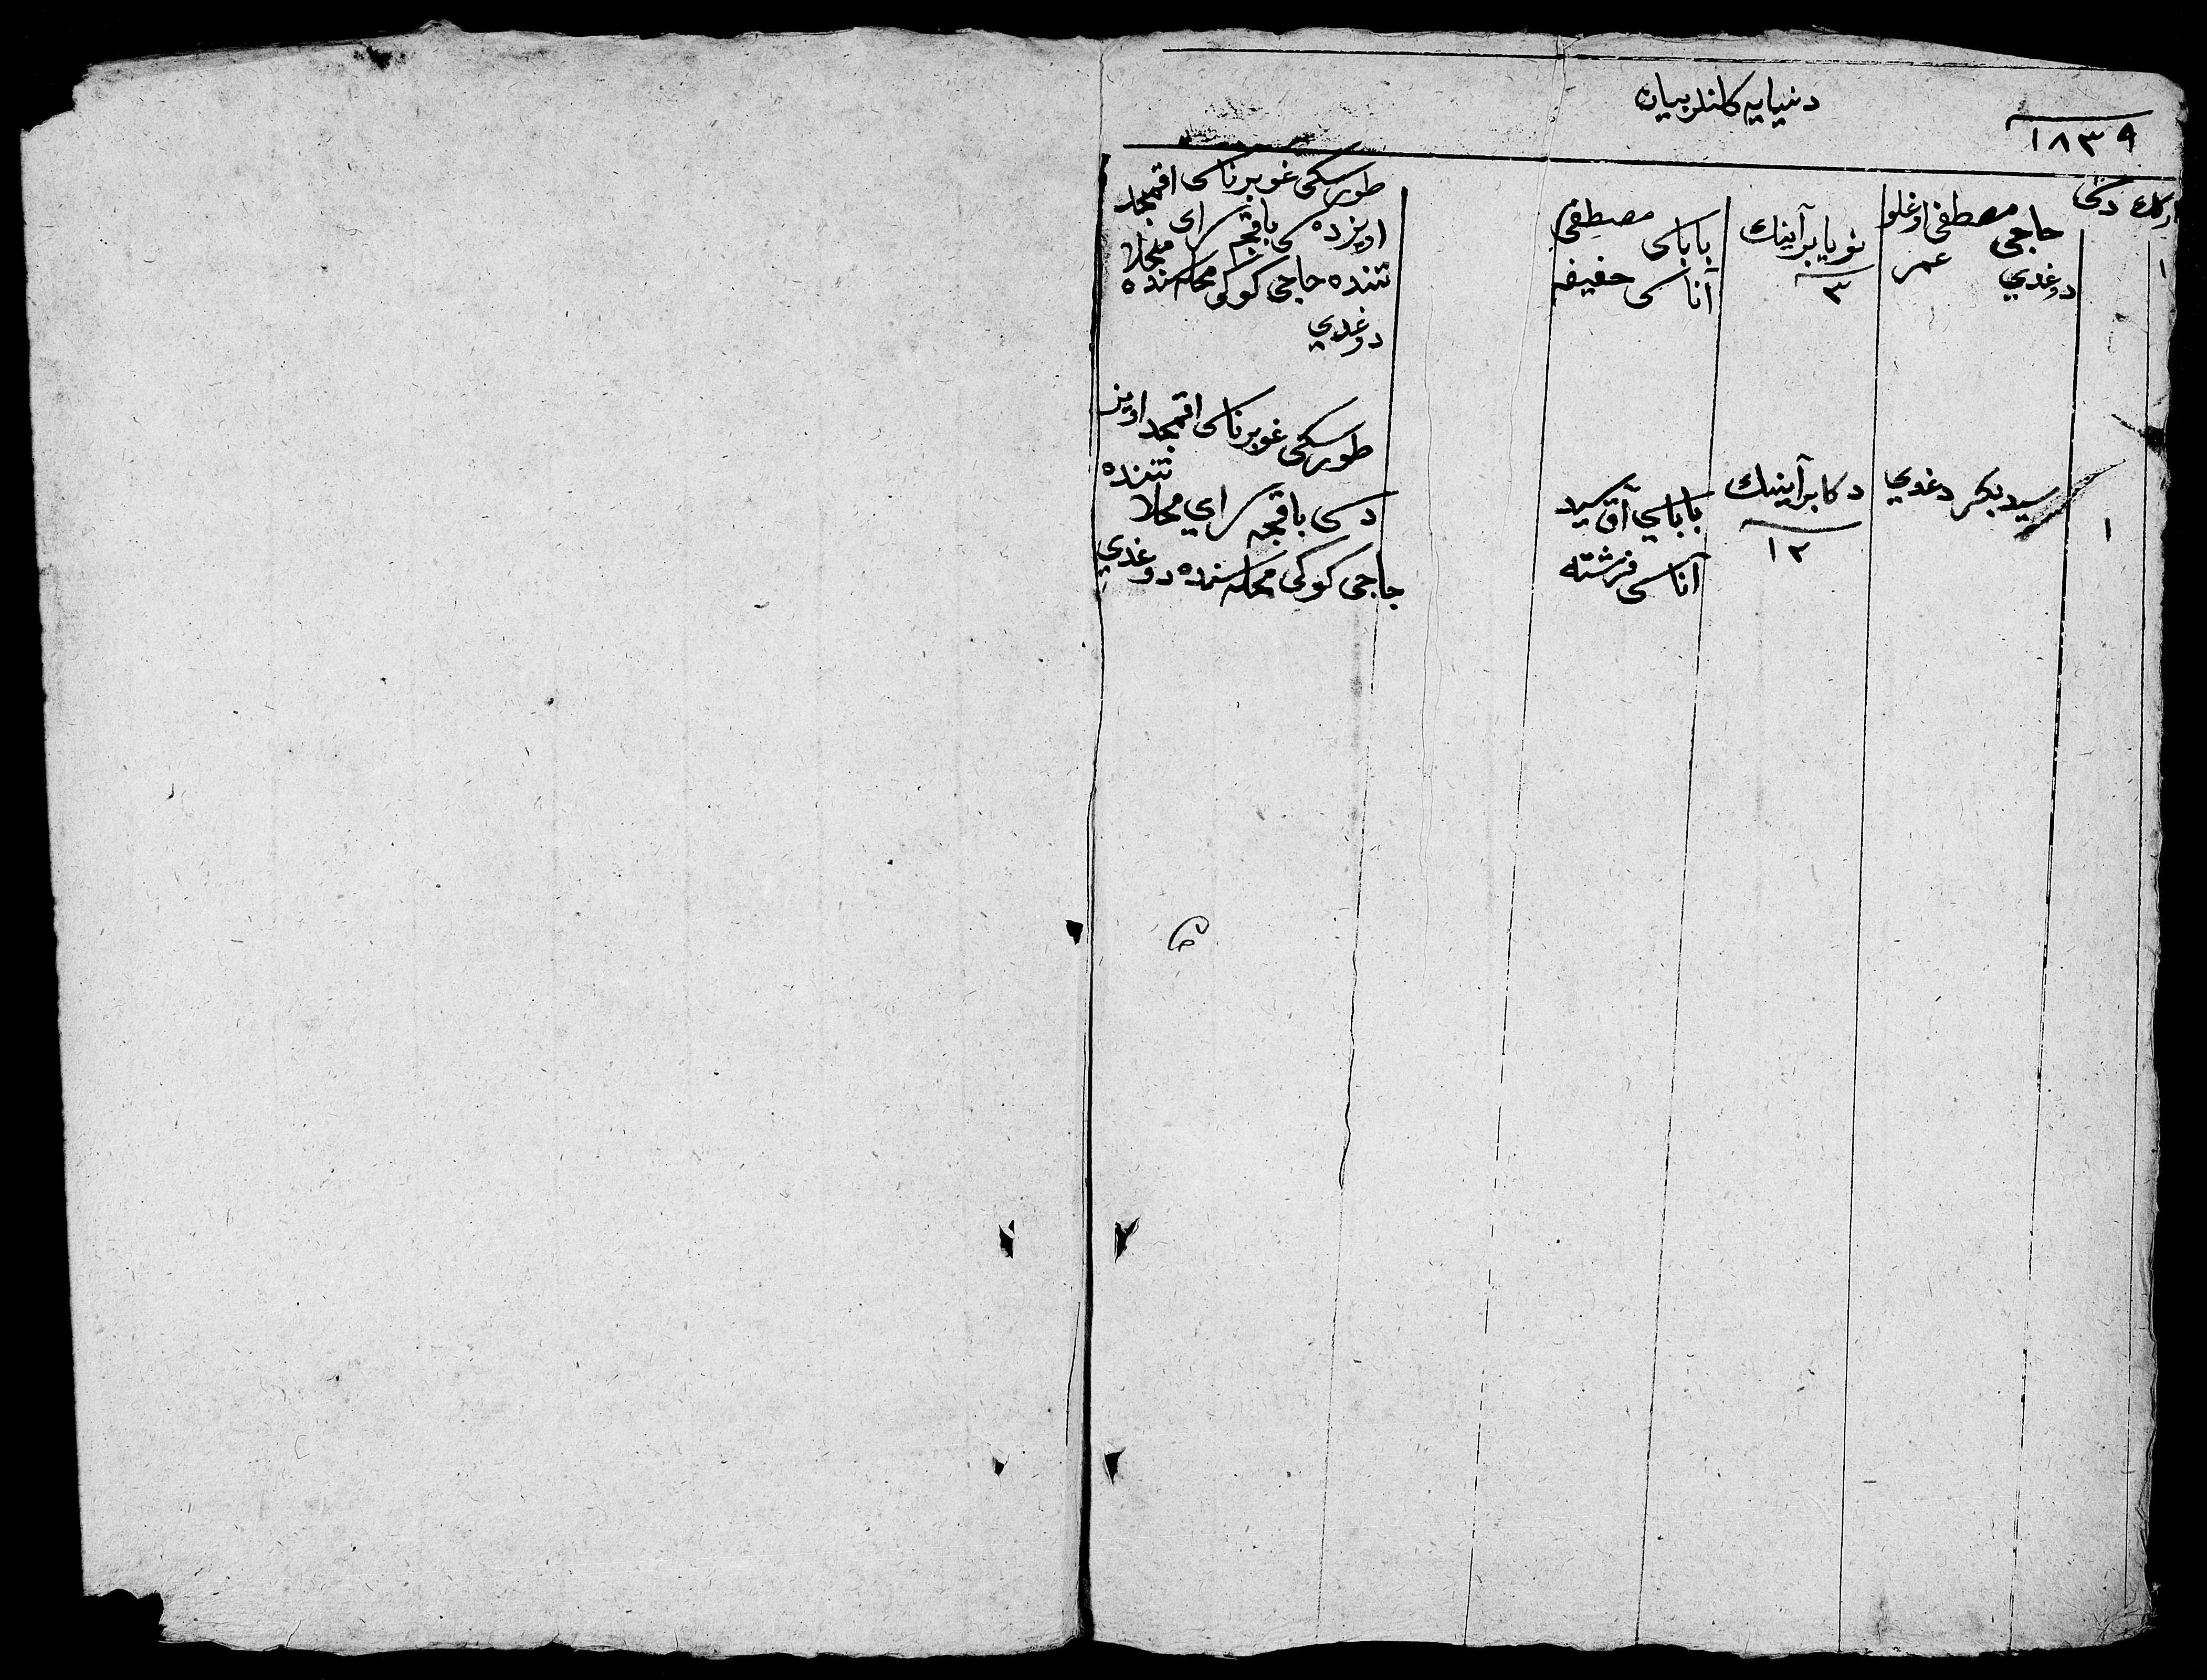 دنیایه کلنلر بیان
١٨٣٩
ارکك دشی
١
حاجی مصطفی اوغلو
عمر
دوغدي
نویابر آیینك
٣
باباسی مصطفی
آناسی حفیفه
طورسکی غوبرناسی اقمجد
اویزده سی باقچه سرای
تنده حاجی کوکی محله سنده
دوغدي
١
سید بکر دغدي
دکابر آیینك
١٢
باباسي آق سید
آناسی فرشته
طورسکی غوبرناسی اقمجد اویز
ده سی باقچه سراي
حاجی کوکی محله سنده دوغدي